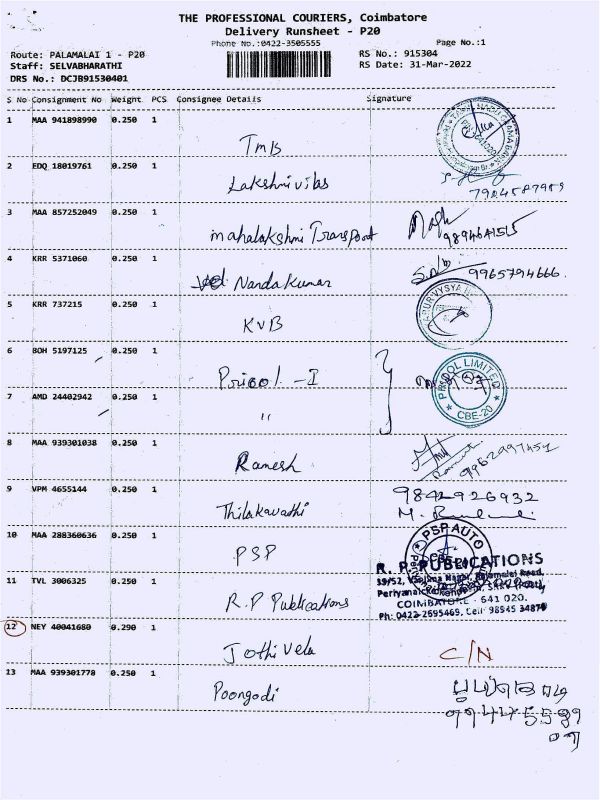 THE PROFESSIONAL COURIERS, Coimbatore
Delivery Runsheet - P20
Phone No.:0422-3505555
Page No.:1
Route: PALAMALAI 1 - P20
RS No.: 915304
Staff: SELVABHARATHI
RS Date: 31-Mar-2022
DRS No.: DCJB91530401
S No Consignment No Weight PCS Consignee Details Signature
1 MAA 941898990 0.250 1
TMB
2 EDQ 18019761 0.250 1
Lakshmi vilas
7904587989
3 MAA 857252049 0.250 1
mahalakshmi Transport
9894641515
4 KRR 5371060 0.250 1
Nanda Kumar
9965794666.
5 KRR 737215 0.250 1
KVB
6 BOH 5197125 0.250 1
Pricol - I
PRICOL LIMITED
CBE-20
7 AMD 24402942 0.250 1
"
8 MAA 939301038 0.250 1
Ramesh
9 VPM 4655144 0.250 1
Thilakavathi
9842926932
10 MAA 288360636 0.250 1
PSP
PSP AUTO
11 TVL 3006325 0.250 1
R.P Publications
R. P. PUBLICATIONS
COIMBATORE - 641 020.
Ph: 0422-2695469, Cell: 98945 34870
12 NEY 40041680 0.290 1
Jothi Vela
C/N
13 MAA 939301778 0.250 1
Poongodi